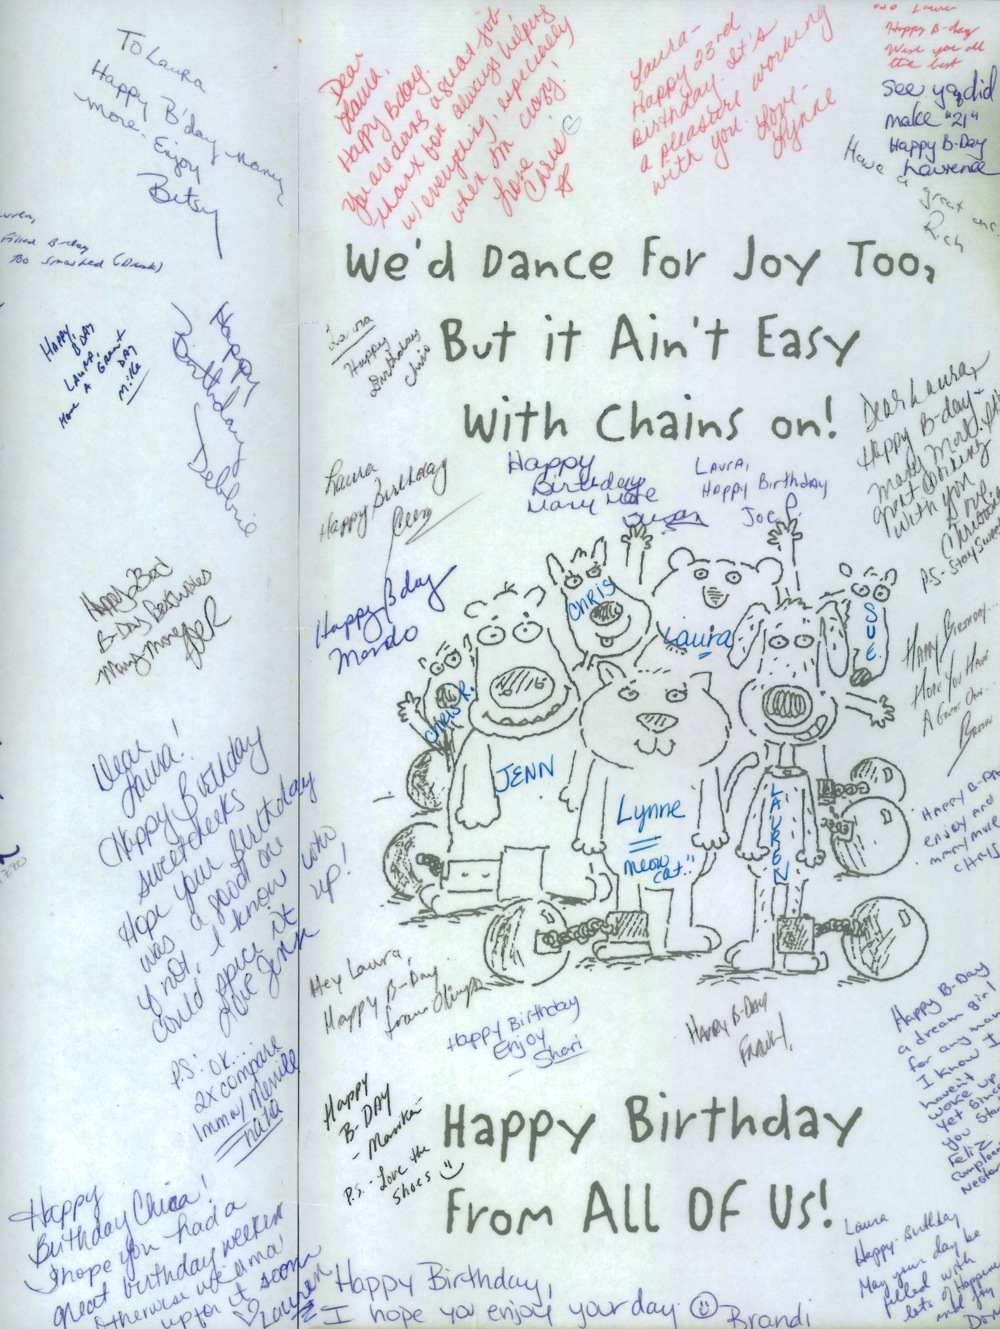 To Laura
Happy B'day
more. Enjoy
Betsy
B-day
Too smashed (Drunk)
Happy
B DAY
LAURA,
Have A Great
DAY
Mike
Happy
Birthday
Debbie
B-Day Best wishes
Dear
Laura!
Happy Birthday
sweetcheeks
Hope your birthday
was a good one
if not, I know who
could spice it up!
Love Jenn
P.S. OK...
2x compare
Happy
Birthday Chica!
I hope you had a
great birthday weekend
otherwise we'll
up for it soon
♡ Lauren
Dear
Laura,
Happy Bday.
You are doing a great job
thanx for always helping
w/ everything, especially
when I'm crazy!
Love
Chris
Laura-
Happy 23rd
Birthday. It's
a pleasure working
with you. Love-
Lynne
Laura
Happy B-day
Wish you all
the best
See ya did
make "21"
Happy B-Day
Lawrence
Have
a
great one
Rich
We'd Dance For Joy Too,
But it Ain't Easy
With Chains on!
Laura
Happy
Birthday
Chris
Laura
Happy Birthday
Happy
Birthday
Many More
Susan
Laura,
Happy Birthday
Joe P.
Dear Laura,
Happy B-day +
many more. It's
great working
with you
Love
Christine
P.S- Stay Sweet
Happy B day
CHRIS
Laura
SUE
CHRIS R.
JENN
Lynne
meow
cat!!
LAUREN
Happy Birthday...
Hope You Have
A Great One...
Happy B-DAY
enjoy and
many more
Hey Laura,
Happy B-Day
from Olimpia
Happy Birthday
Enjoy
Shari
Happy B-Day
Frank!
Happy B-Day
a dream girl
for any man
I know I
haven't
woke up
yet since
you
Feliz
Nestor
Happy
B-DAY
- Marika-
P.S.- Love the
shoes
Happy Birthday
From All Of Us!
Laura
Happy-Birthday
May your day be
filled with
lots of Happiness
and joy
Happy Birthday,
I hope you enjoy your day ☺ Brandi